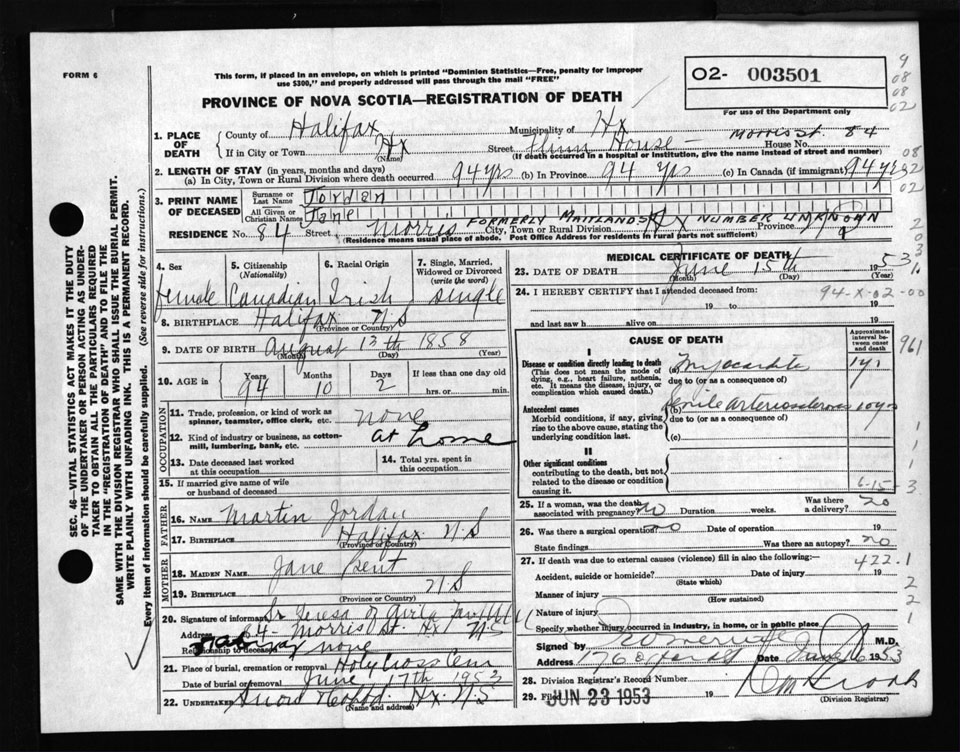 FORM 6
This form, if placed in an envelope, on which is printed "Dominion Statistics—Free, penalty for improper
use $300," and properly addressed will pass through the mail "FREE"
O2- 003501
For use of the Department only
9
08
08
02
PROVINCE OF NOVA SCOTIA—REGISTRATION OF DEATH
1. PLACE OF DEATH
County of Halifax Municipality of Hx
If in City or Town Hx (Name) Street House — Morris St. House No. 84
(If death occurred in a hospital or institution, give the name instead of street and number)
2. LENGTH OF STAY (in years, months and days)
(a) In City, Town or Rural Division where death occurred 94 yrs (b) In Province 94 yrs (c) In Canada (if immigrant) 94 yrs
3. PRINT NAME OF DECEASED
Surname or Last Name Jordan
All Given or Christian Names Jane
FORMERLY MAITLAND ST NUMBER UNKNOWN
RESIDENCE No. 84 Street Morris City, Town or Rural Division Hx Province NS
(Residence means usual place of abode. Post Office Address for residents in rural parts not sufficient)
4. Sex female
5. Citizenship (Nationality) Canadian
6. Racial Origin Irish
7. Single, Married, Widowed or Divorced (write the word) single
8. BIRTHPLACE Halifax NS (Province or Country)
9. DATE OF BIRTH August 13th 1858
(Month) (Day) (Year)
10. AGE in Years 94 Months 10 Days 2 If less than one day old hrs. or min.
OCCUPATION
11. Trade, profession, or kind of work as spinner, teamster, office clerk, etc. none
12. Kind of industry or business, as cotton-mill, lumbering, bank, etc. at home
13. Date deceased last worked at this occupation
14. Total yrs. spent in this occupation
15. If married give name of wife or husband of deceased
FATHER
16. NAME Martin Jordan
17. BIRTHPLACE Halifax N.S (Province or Country)
MOTHER
18. MAIDEN NAME Jane Kent
19. BIRTHPLACE NS (Province or Country)
20. Signature of informant Sr Teresa
Address 84 Morris St. Hx NS
Relationship to deceased none
21. Place of burial, cremation or removal Holy Cross Cem
Date of burial or removal June 17th 1953
22. UNDERTAKER Snow Hx. N.S
(Name and address)
MEDICAL CERTIFICATE OF DEATH
23. DATE OF DEATH June 15th 1953
(Month) (Day) (Year)
24. I HEREBY CERTIFY that I attended deceased from
94-X-02-00
19 to 19
and last saw h alive on 19
CAUSE OF DEATH
Approximate interval between cause and death
I
Disease or condition directly leading to death
(This does not mean the mode of dying, e.g., heart failure, asthenia, etc. It means the disease, injury, or complication which caused death.)
(a) Myocardite 1 yr
due to (or as a consequence of)
Antecedent causes
Morbid conditions, if any, giving rise to the above cause, stating the underlying condition last.
(b) Senile arteriosclerosis 10 yrs
due to (or as a consequence of)
(c)
II
Other significant conditions
contributing to the death, but not related to the disease or condition causing it.
961
6-15-3
25. If a woman, was the death associated with pregnancy? no Duration weeks. Was there a delivery? no
26. Was there a surgical operation? no Date of operation 19
State findings Was there an autopsy? no
27. If death was due to external causes (violence) fill in also the following:—
422.1
Accident, suicide or homicide? (State which) Date of injury 19
Manner of injury (How sustained)
Nature of injury
Specify whether injury occurred in industry, in home, or in public place
Signed by M.D.
Address Date June 1953
28. Division Registrar's Record Number
29. Filed JUN 23 1953 19
(Division Registrar)
SEC. 46—VITAL STATISTICS ACT MAKES IT THE DUTY
OF THE UNDERTAKER OR PERSON ACTING AS UNDER-
TAKER TO OBTAIN ALL THE PARTICULARS REQUIRED
IN THE "REGISTRATION OF DEATH" AND TO FILE THE
SAME WITH THE DIVISION REGISTRAR WHO SHALL ISSUE THE BURIAL PERMIT.
WRITE PLAINLY WITH UNFADING INK. THIS IS A PERMANENT RECORD.
Every item of information should be carefully supplied. (See reverse side for instructions.)